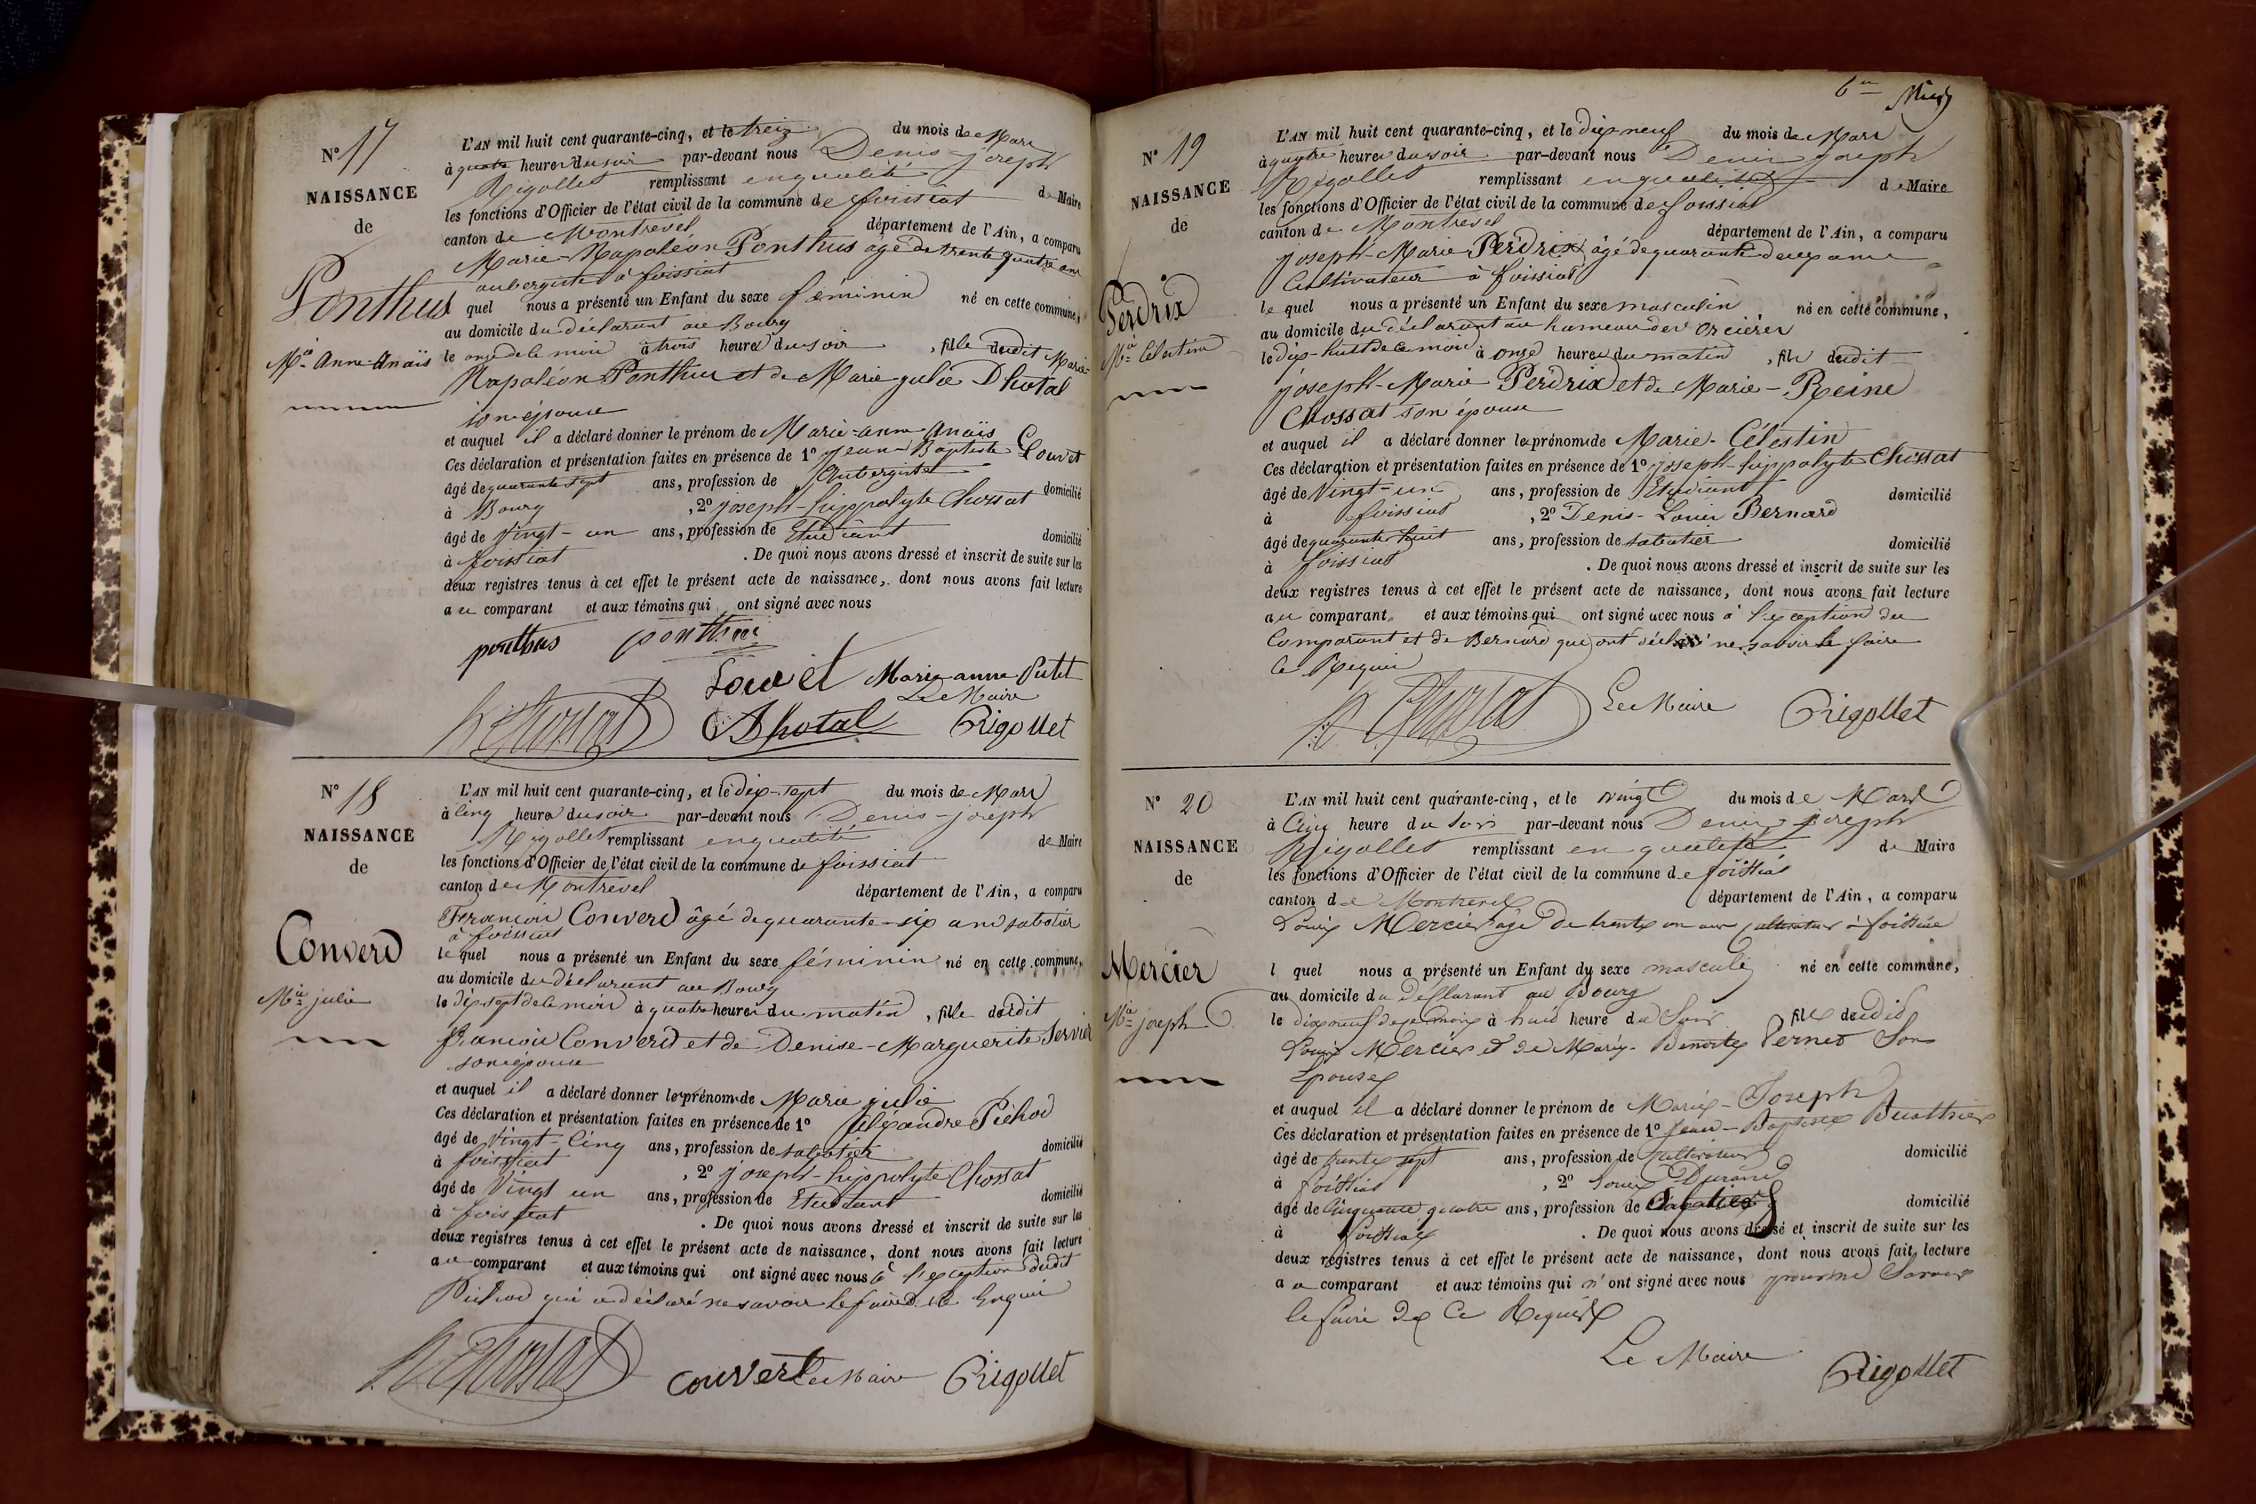 N° 17
NAISSANCE
de
Ponthus
Mie Anne-Anaïs
L'AN mil huit cent quarante-cinq, et le treize du mois de Mars
à quatre heures du soir par-devant nous Denis-joseph
Rigollet remplissant en qualité de Maire
les fonctions d'Officier de l'état civil de la commune de foissiat
canton de Montrevel département de l'Ain, a comparu
Marie Napoléon Ponthus âgé de trente quatre ans
aubergiste à foissiat
quel nous a présenté un Enfant du sexe féminin né en cette commune,
au domicile du déclarant au Bourg
le onze de ce mois à trois heures du soir, fille dudit Marie
Napoléon Ponthus et de Marie julie Dhotal
son épouse
et auquel il a déclaré donner le prénom de Marie-anne Anaïs
Ces déclaration et présentation faites en présence de 1° jean Baptiste Louvet
âgé de quarante sept ans, profession de Aubergiste domicilié
à Bourg, 2° joseph-hippolyte Chossat
âgé de Vingt-un ans, profession de Etudiant domicilié
à foissiat. De quoi nous avons dressé et inscrit de suite sur les
deux registres tenus à cet effet le présent acte de naissance, dont nous avons fait lecture
au comparant et aux témoins qui ont signé avec nous
ponthus ponthus
Louvet Marie anne Putet
Le Maire
h Chossat Dhotal Rigollet
N° 18
NAISSANCE
de
Converd
Mie julie
L'AN mil huit cent quarante-cinq, et le dix-sept du mois de Mars
à cinq heures du soir par-devant nous Denis-joseph
Rigollet remplissant en qualité de Maire
les fonctions d'Officier de l'état civil de la commune de foissiat
canton de Montrevel département de l'Ain, a comparu
François Converd âgé de quarante-six ans sabotier
à foissiat
le quel nous a présenté un Enfant du sexe féminin né en cette commune,
au domicile du déclarant au Bourg
le dix sept de ce mois à quatre heures du matin, fille dudit
françois Converd et de Denise-Marguerite Servier
son épouse
et auquel il a déclaré donner les prénoms de Marie julie
Ces déclaration et présentation faites en présence de 1° Alexandre Pichod
âgé de Vingt-Cinq ans, profession de sabotier domicilié
à foissiat, 2° joseph-hippolyte Chossat
âgé de Vingt un ans, profession de Etudiant domicilié
à foissiat. De quoi nous avons dressé et inscrit de suite sur les
deux registres tenus à cet effet le présent acte de naissance, dont nous avons fait lecture
au comparant et aux témoins qui ont signé avec nous à l'exception dudit
Pichod qui a déclaré ne savoir le faire de ce Enquis
h Chossat couvert Le Maire Rigollet
N° 19
NAISSANCE
de
Perdrix
Mie Célestin
L'AN mil huit cent quarante-cinq, et le dix neuf du mois de Mars
à quatre heures du soir par-devant nous Denis joseph
Rigollet remplissant en qualité de Maire
les fonctions d'Officier de l'état civil de la commune de foissiat
canton de Montrevel département de l'Ain, a comparu
joseph-Marie Perdrix âgé de quarante deux ans
Cultivateur à foissiat
le quel nous a présenté un Enfant du sexe masculin né en cette commune,
au domicile du déclarant au hameau des Orcières
le dix-huit de ce mois à onze heures du matin, fils dudit
joseph-Marie Perdrix et de Marie-Reine
Chossat son épouse
et auquel il a déclaré donner les prénoms de Marie-Célestin
Ces déclaration et présentation faites en présence de 1° joseph-hippolyte Chossat
âgé de Vingt-un ans, profession de Etudiant domicilié
à foissiat, 2° Denis-Louis Bernard
âgé de quarante huit ans, profession de sabotier domicilié
à foissiat. De quoi nous avons dressé et inscrit de suite sur les
deux registres tenus à cet effet le présent acte de naissance, dont nous avons fait lecture
au comparant et aux témoins qui ont signé avec nous à l'exception du
Comparant et de Bernard qui ont déclaré ne savoir le faire
Ce Requis
h Chossat Le Maire Rigollet
N° 20
NAISSANCE
de
Mercier
Mie joseph
L'AN mil huit cent quarante-cinq, et le vingt du mois de Mars
à Cinq heure du soir par-devant nous Denis joseph
Rigollet remplissant en qualité de Maire
les fonctions d'Officier de l'état civil de la commune de foissiat
canton de Montrevel département de l'Ain, a comparu
Louis Mercier âgé de trente un ans cultivateur à foissiat
l quel nous a présenté un Enfant du sexe masculin né en cette commune,
au domicile du déclarant au Bourg
le dix neuf de ce mois à huit heure du soir fils dudit
Louis Mercier et de Marie-Benoite Pernet Son
Epouse
et auquel il a déclaré donner le prénom de Marie-Joseph
Ces déclaration et présentation faites en présence de 1° Jean-Baptiste Buathier
âgé de trente sept ans, profession de cultivateur domicilié
à foissiat, 2° Louis Durand
âgé de Cinquante quatre ans, profession de domicilié
à foissiat. De quoi nous avons dressé et inscrit de suite sur les
deux registres tenus à cet effet le présent acte de naissance, dont nous avons fait lecture
au comparant et aux témoins qui n'ont signé avec nous pour ne savoir
le faire de Ce Requis
Le Maire
Rigollet